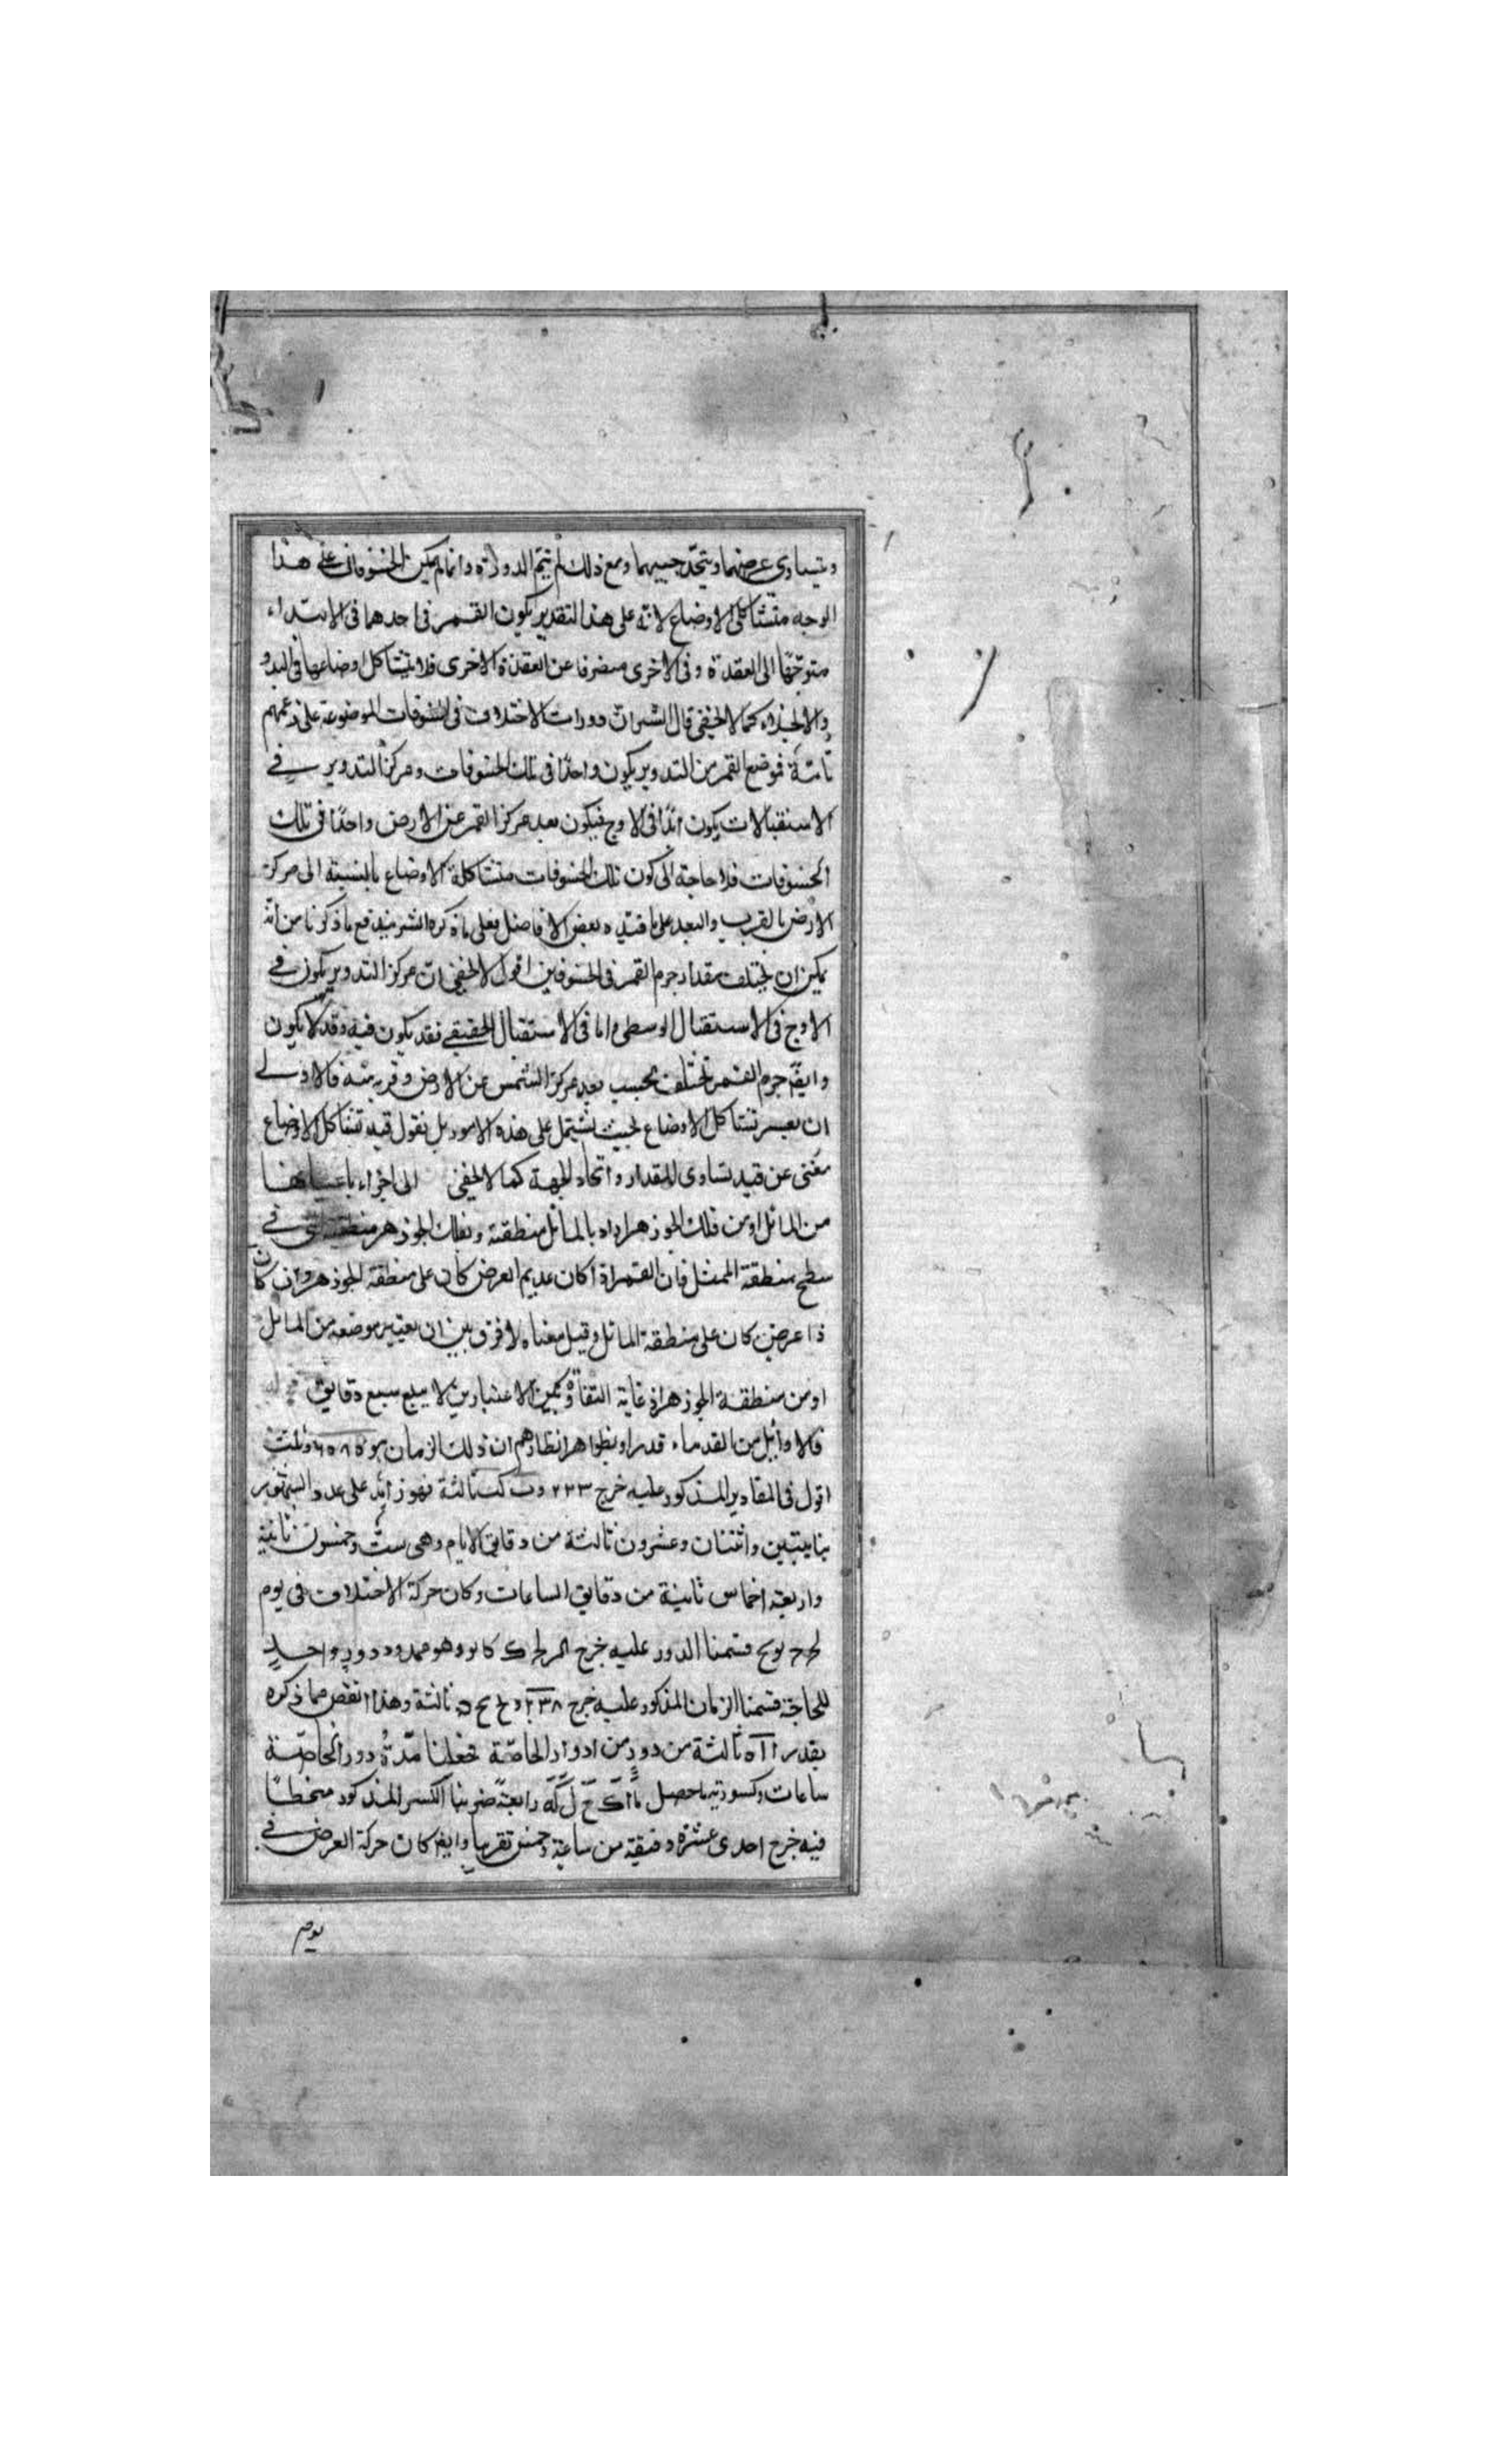 ويتساوى عرضهما ويتحد جيبهما ومع ذلك لم يتم الدورات وانما لم يكن الخسوفان على هذا
الوجه متشاكلى الاوضاع لانه على هذا التقدير يكون القمر فى احدهما فى الابتداء
متوجّها الى العقدة وفى الاخرى منصرفا عن العقدة الاخرى فلا يتشاكل اوضاعها فى البدو
والانجلاء كما لا يخفى قال الشر ان دورات الاختلاف فى الخسوفات الموضوعة على زعمهم
تامّة فموضع القمر من التدوير يكون واحدًا فى تلك الخسوفات ومركز التدوير فى
الاستقبالات يكون ابدًا فى الاوج فيكون بعد مركز القمر عن الارض واحدًا فى تلك
الخسوفات فلا حاجة الى كون تلك الخسوفات متشاكلة الاوضاع بالنسبة الى مركز
الارض بالقرب والبعد على ما قيده بعض الافاضل فعلى ما ذكره الشر يندفع ما ذكرنا من انه
يمكن ان يختلف مقدار جرم القمر فى الخسوفين اقول لا يخفى ان مركز التدوير يكون فى
الاوج فى الاستقبال الوسطى واما فى الاستقبال الحقيقى فقد يكون فيه وقد لا يكون
وايضّ جرم القمر تختلف بحسب بعد مركز الشمس عن الارض وقربه منه فالاولى
ان يعسر تشاكل الاوضاع بحيث تشتمل على هذه الامور بل نقول قيد تشاكل الاوضاع
مغنى عن قيد تساوى المقدار واتحاد الجهة كما لا يخفى الى اجزاء باعيانها
من المائل او من فلك الجوزهر اراد بالمائل منطقته وبفلك الجوزهر منطقته التى فى
سطح منطقة الممثل فان القمر اذا كان عديم العرض كان على منطقة الجوزهر وان كان
ذا عرض كان على منطقة المائل وقيل معناه لا فرق بين ان يعتبر موضعه من المائل
او من منطقة الجوزهر اذ غاية التفاوت بين الاعتبارين لا يبلغ سبع دقايق
فالاوائل من القدماء قدر او بظواهر انظارهم ان ذلك الزمان هو ٦٥٨٥ وثلث
اقول فى المقادير المذكور عليه خرج ٢٢٣ ثالثة فهو زائد على عدد الشهور
بثانيتين واثنتان وعشرون ثالثة من دقايق الايام وهى ستّ وخمسون ثانية
واربعة اخماس ثانية من دقايق الساعات وكان حركة الاختلاف فى يوم
قسمنا الدور عليه خرج وهو ممدود دور واحد
للحاجة قسمنا الزمان المذكور عليه خرج ٢٣٨ ثالثة وهذا انقص مما ذكره
بقدر ثالثة من دور من ادوار الخاصّة فجعلنا مدّة دور الخاصّة
ساعات وكسورته ما حصل رابعة ضربنا الكسر المذكور منحطا
فيه خرج احدى عشرة دقيقة من ساعة وخمس تقريبا وايضّ كان حركة العرض فى
يوم